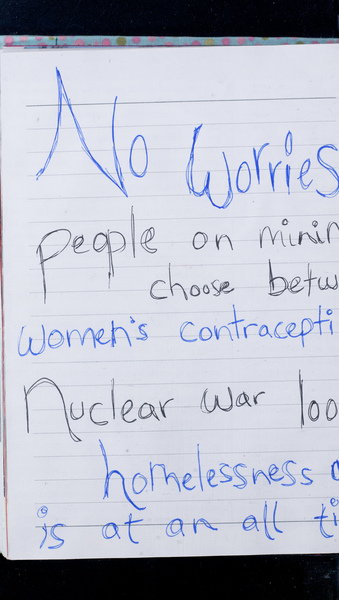 No Worries
people on minin
choose betw
women's contracepti
Nuclear War loo
homelessness
is at an all ti